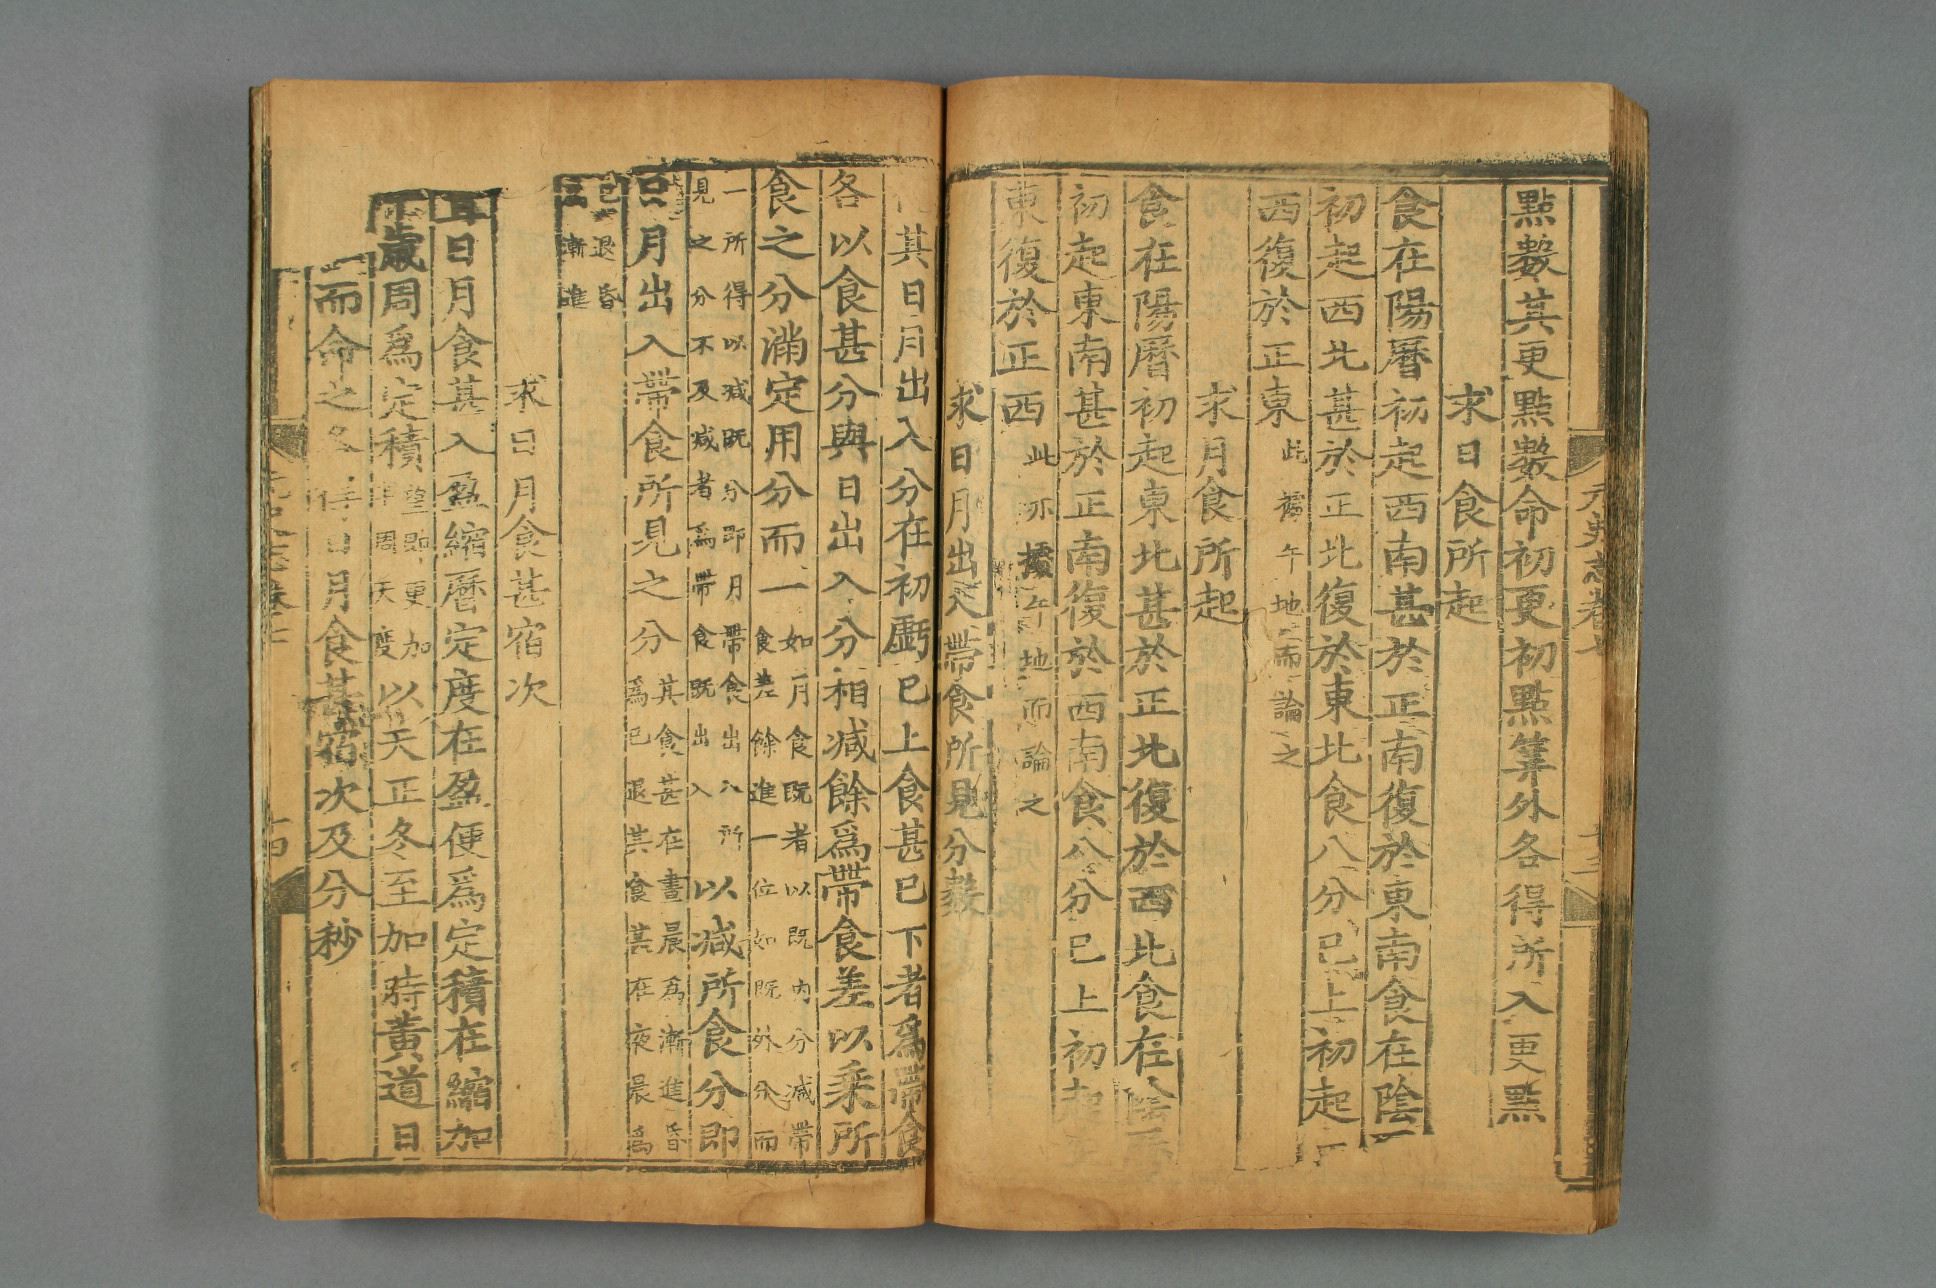 元史志卷七
點數其更點數命初更初點筭外各得所入更點
求日食所起
食在陽曆初起西南甚於正南復於東南食在陰
初起西北甚於正北復於東北食八分已上初起
西復於正東此據午地而論之
求月食所起
食在陽曆初起東北甚於正北復於西北食在陰
初起東南甚於正南復於西南食八分已上初起
東復於正西此亦據午地而論之
求日月出入帶食所見分數
其日月出入分在初虧已上食甚已下者爲帶食
各以食甚分與日出入分相減餘爲帶食差以乘所
食之分滿定用分而一如月食既者以既內分減帶食差餘進一位如既外分而
一所得以減既分即月帶食出入所見之分不及減者爲帶食既出入以減所食分即
日月出入帶食所見之分其食甚在晝晨爲漸進昏爲已退其食甚在夜晨爲
已退昏爲漸進
求日月食甚宿次
置日月食甚入盈縮曆定度在盈便爲定積在縮加
半歲周爲定積望即更加半周天度以天正冬至加時黃道日
而命之各得日月食甚宿次及分秒
元史志卷七
十四